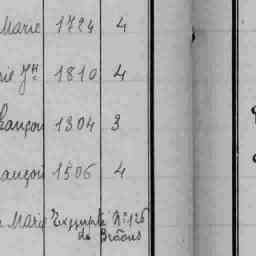 Marie 1724 4
rie Jh 1810 4
François 1304 3
ançois 1506 4
Marie Exempte N° 126
de Broons